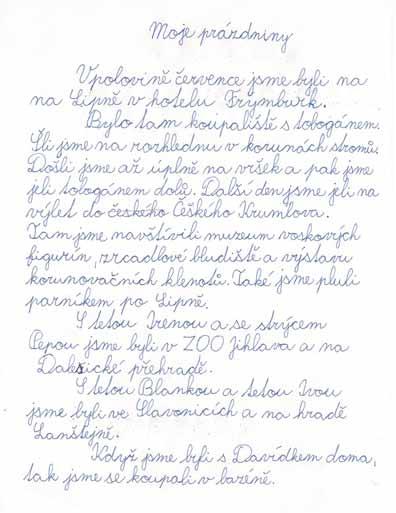 Moje prázdniny
V polovině července jsme byli na
na Lipně v hotelu Frymburk.
Bylo tam koupaliště s tobogánem.
Šli jsme na rozhlednu v korunách stromů.
Došli jsme až úplně na vršek a pak jsme
jeli tobogánem dolů. Další den jsme jeli na
výlet do českého Českého Krumlova.
Tam jsme navštívili muzeum voskových
figurín, zrcadlové bludiště a výstavu
korunovačních klenotů. Také jsme pluli
parníkem po Lipně.
S tetou Irenou a se strýcem
Pepou jsme byli v ZOO Jihlava a na
Dalešické přehradě.
S tetou Blankou a tetou Ivou
jsme byli ve Slavonicích a na hradě
Lanštejně.
Když jsme byli s Davídkem doma,
tak jsme se koupali v bazéně.